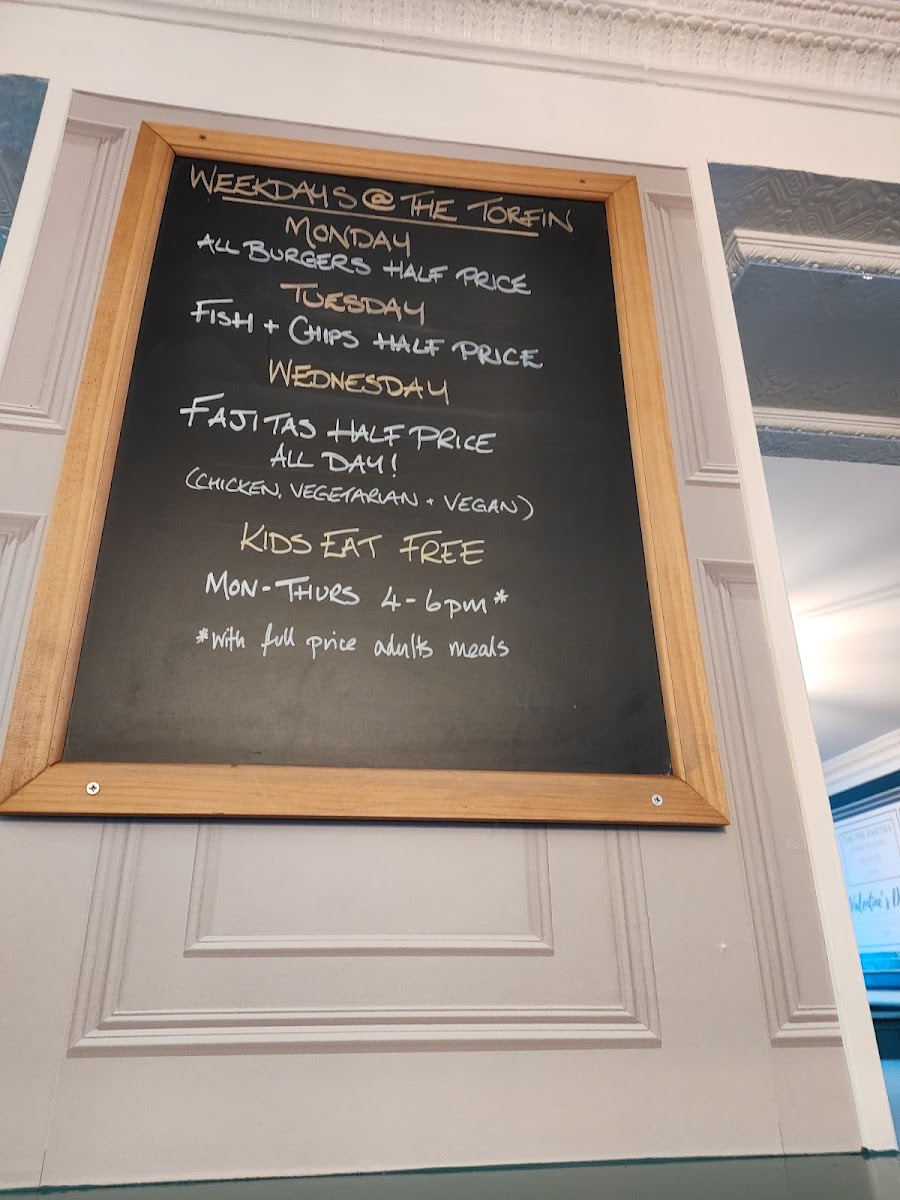 WEEKDAYS @ THE TORFIN
MONDAY
ALL BURGERS HALF PRICE
TUESDAY
FISH + CHIPS HALF PRICE
WEDNESDAY
FAJITAS HALF PRICE
ALL DAY!
(CHICKEN, VEGETARIAN + VEGAN)
KIDS EAT FREE
MON-THURS 4-6pm*
*with full price adults meals
THE PRE PARTIES
Valentine's D